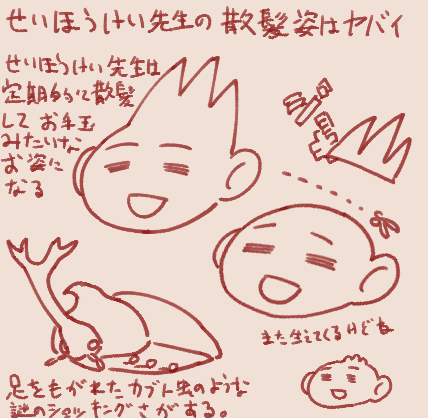 せいほうけい先生の散髪姿はヤバイ
せいほうけい先生は
定期的に散髪
して お手玉
みたいな
お姿に
なる
チョキ
チョキ
また生えてくるけどね
足をもがれたカブト虫のような
謎のショッキングさがある。